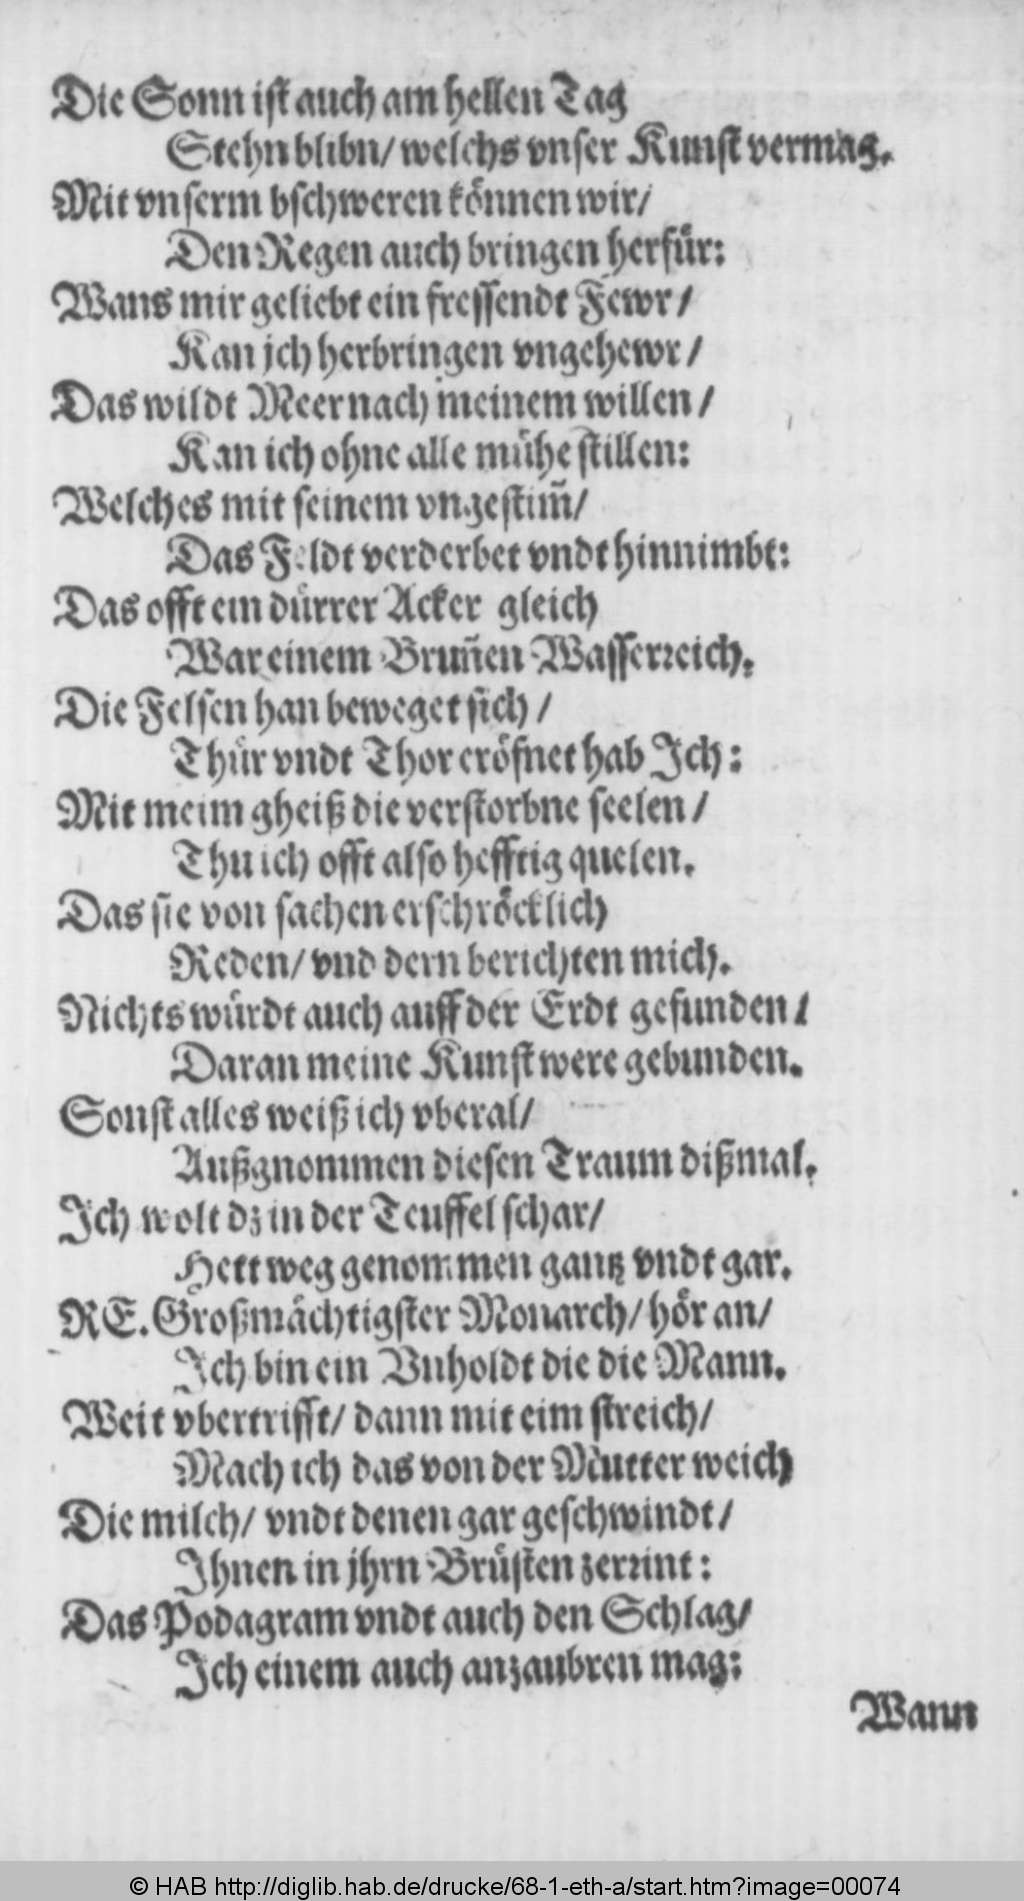 Die Sonn ist auch am hellen Tag
Stehn blibn/ welchs vnser Kunst vermag.
Mit vnserm bschweren können wir/
Den Regen auch bringen herfür:
Wans mir geliebt ein fressendt Fewr/
Kan jch herbringen vngehewr/
Das wildt Meer nach meinem willen/
Kan ich ohne alle mühe stillen:
Welches mit seinem vngestim̃/
Das Feldt verderbet vndt hinnimbt:
Das offt ein dürrer Acker gleich
War einem Brun̄en Wasserreich.
Die Felsen han beweget sich/
Thür vndt Thor eröfnet hab Ich:
Mit meim gheiß die verstorbne seelen/
Thu ich offt also hefftig quelen.
Das sie von sachen erschröcklich
Reden/ vnd dern berichten mich.
Nichts würdt auch auff der Erdt gefunden/
Daran meine Kunst were gebunden.
Sonst alles weiß ich vberal/
Außgnommen diesen Traum dißmal.
Ich wolt dz in der Teuffel schar/
Hett weg genommen gantz vndt gar.
RE. Großmächtigster Monarch/ hör an/
Ich bin ein Vnholdt die die Mann.
Weit vbertrifft/ dann mit eim streich/
Mach ich das von der Mutter weich
Die milch/ vndt denen gar geschwindt/
Ihnen in jhrn Brüsten zerrint:
Das Podagram vndt auch den Schlag/
Ich einem auch anzaubren mag:
Wann
© HAB http://diglib.hab.de/drucke/68-1-eth-a/start.htm?image=00074